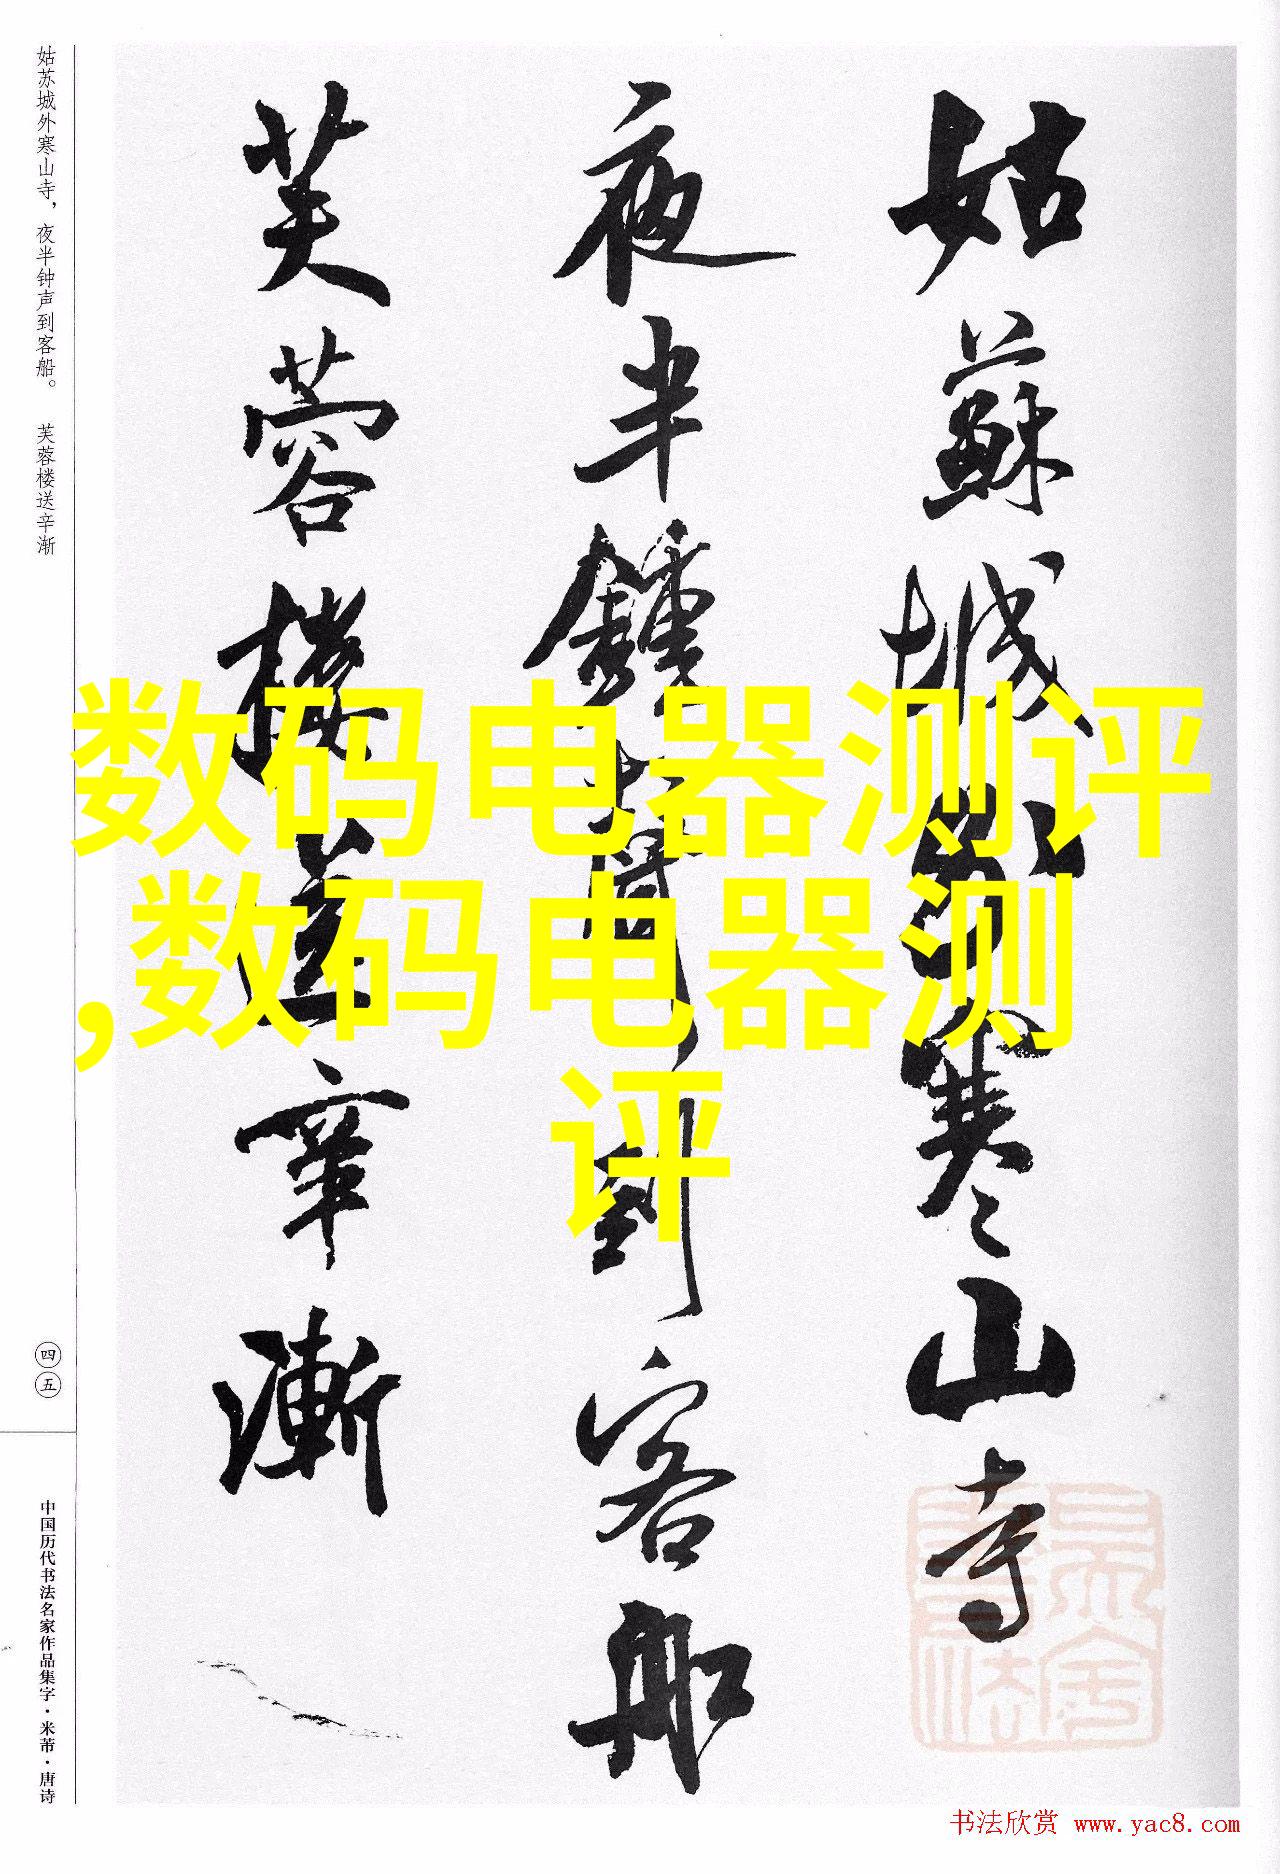 姑蘇城外寒山寺
夜半鐘聲到客船
芙蓉樓送辛漸
姑苏城外寒山寺，夜半钟声到客船。 芙蓉楼送辛渐
四五
中国历代书法名家作品集字·米芾·唐诗
数码电器测评
,数码电器测
评
书法欣赏 www.yac8.com